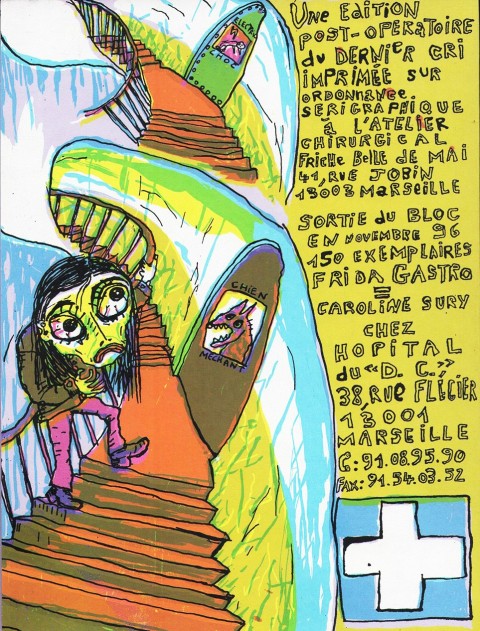 UNE EDITION
POST-OPERATOIRE
du DERNIER CRI
IMPRIMÉE SUR
ORDONNANCE
SERIGRAPHIQUE
à L'ATELIER
CHIRURGICAL
FRICHE BELLE DE MAI
41, RUE JOBIN
13003 MARSEILLE
SORTIE du BLOC
EN NOVEMBRE 96
150 EXEMPLAIRES
FRIDA GASTRO
=
CAROLINE SURY
CHEZ
HOPITAL
du "D. C."
38, RUE FLÉGIER
13001
MARSEILLE
C: 91.08.95.90
FAX: 91.54.03.52
ELECTRO
CHOC
CHIEN
MECHANT